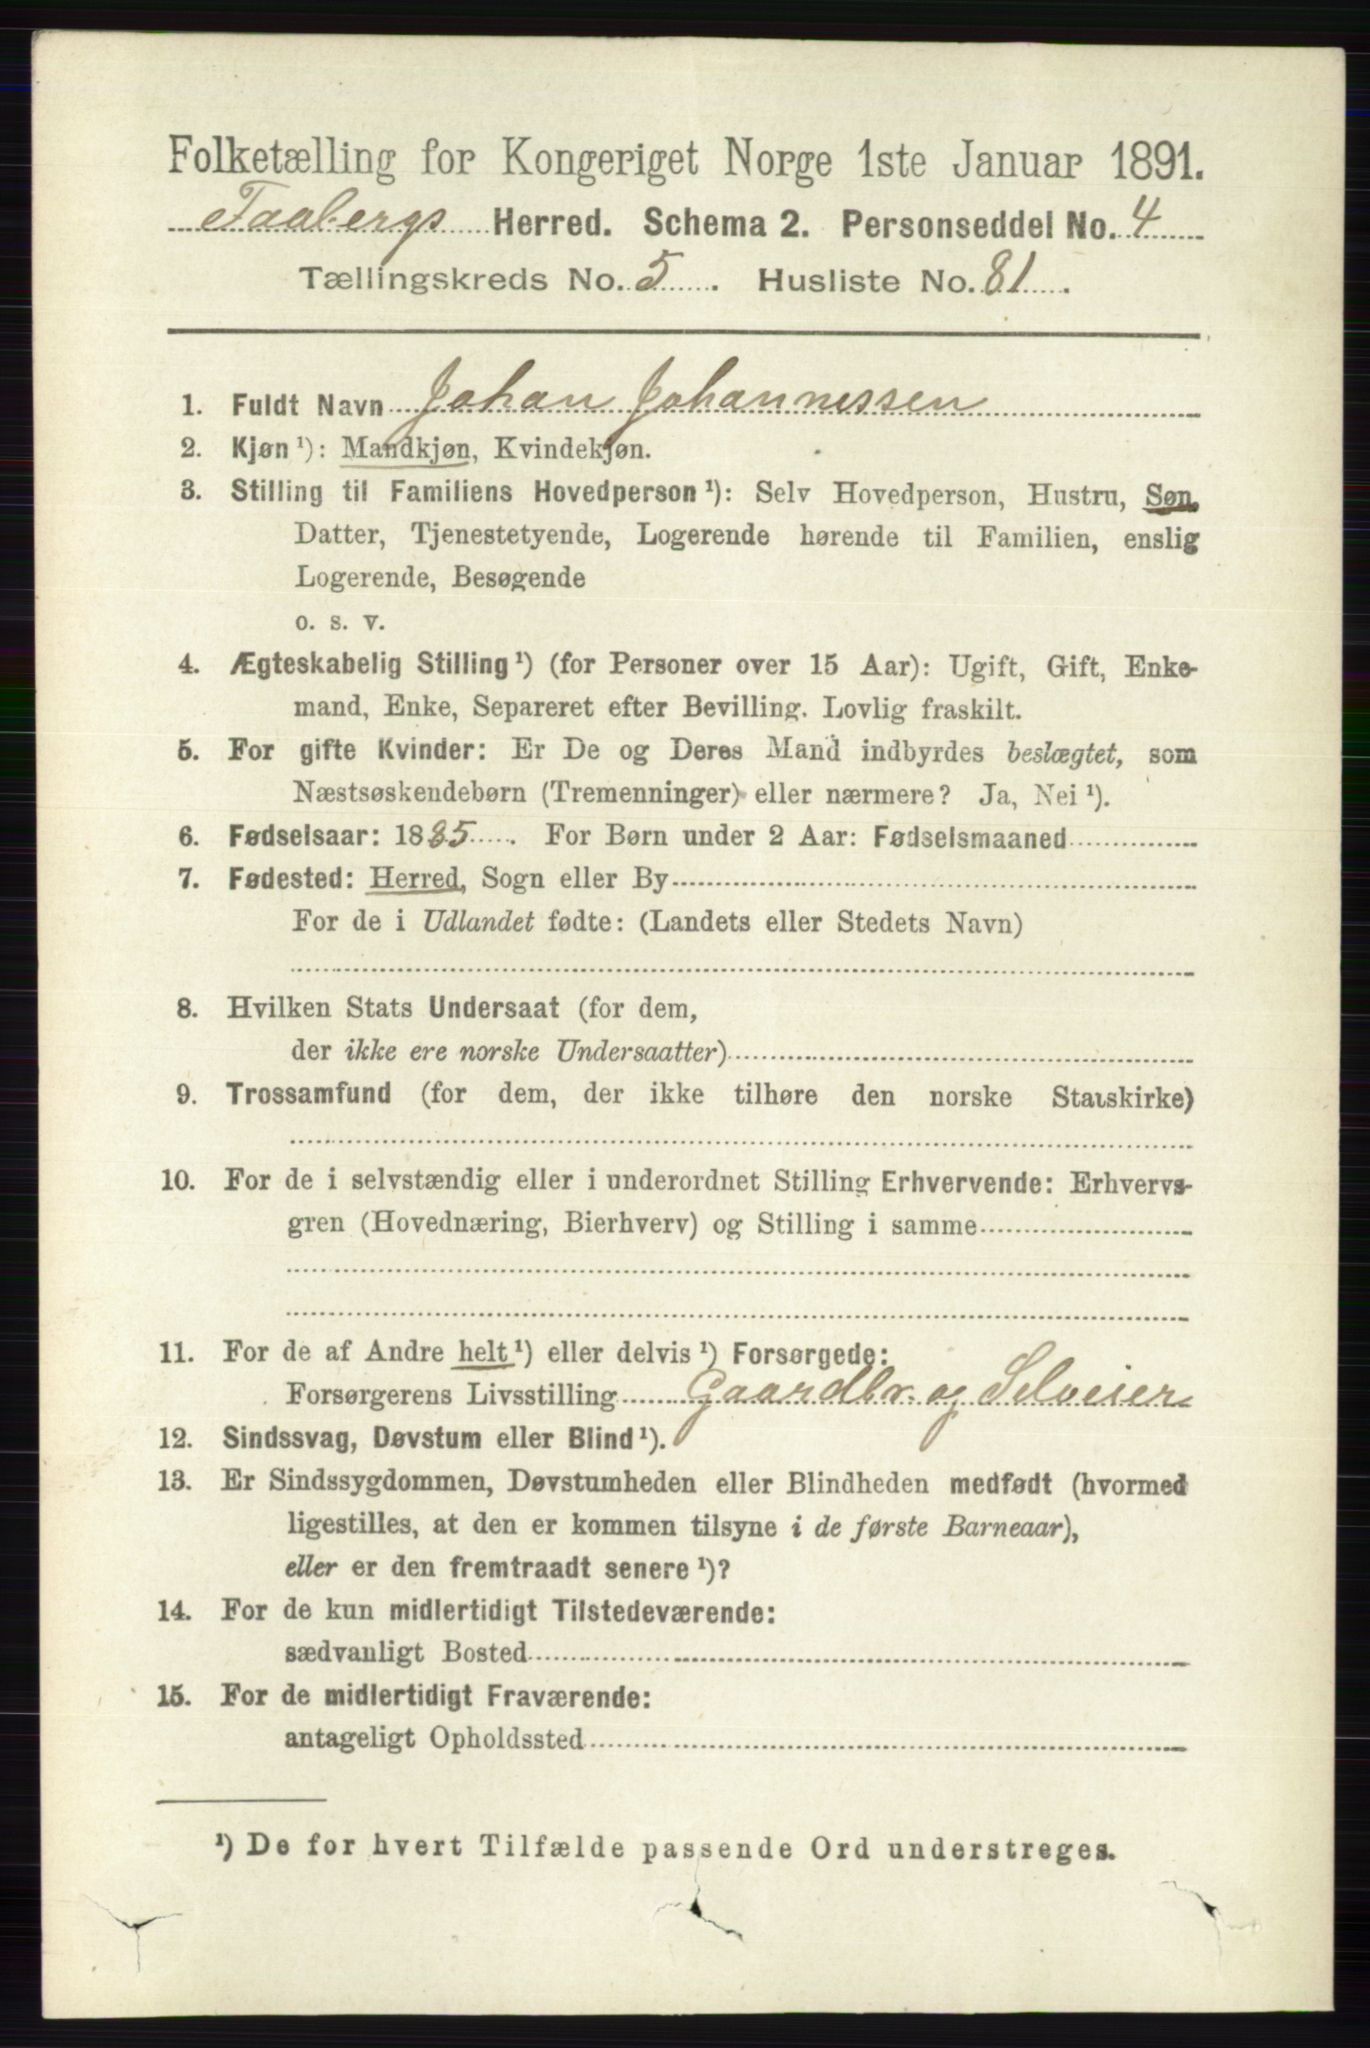 Folketælling for Kongeriget Norge 1ste Januar 1891.
Faabergs Herred. Schema 2. Personseddel No. 4
Tællingskreds No. 5. Husliste No. 81.
1. Fuldt Navn Johan Johannessen
2. Kjøn ¹): Mandkjøn, Kvindekjøn.
3. Stilling til Familiens Hovedperson ¹): Selv Hovedperson, Hustru, Søn,
Datter, Tjenestetyende, Logerende hørende til Familien, enslig
Logerende, Besøgende
o. s. v.
4. Ægteskabelig Stilling ¹) (for Personer over 15 Aar): Ugift, Gift, Enke-
mand, Enke, Separeret efter Bevilling. Lovlig fraskilt.
5. For gifte Kvinder: Er De og Deres Mand indbyrdes beslægtet, som
Næstsøskendebørn (Tremenninger) eller nærmere? Ja, Nei ¹).
6. Fødselsaar: 1885. For Børn under 2 Aar: Fødselsmaaned
7. Fødested: Herred, Sogn eller By
For de i Udlandet fødte: (Landets eller Stedets Navn)
8. Hvilken Stats Undersaat (for dem,
der ikke ere norske Undersaatter)
9. Trossamfund (for dem, der ikke tilhøre den norske Statskirke)
10. For de i selvstændig eller i underordnet Stilling Erhvervende: Erhvervs-
gren (Hovednæring, Bierhverv) og Stilling i samme
11. For de af Andre helt ¹) eller delvis ¹) Forsørgede:
Forsørgerens Livsstilling Gaardbr. og Selveier
12. Sindssvag, Døvstum eller Blind ¹).
13. Er Sindssygdommen, Døvstumheden eller Blindheden medfødt (hvormed
ligestilles, at den er kommen tilsyne i de første Barneaar),
eller er den fremtraadt senere ¹)?
14. For de kun midlertidigt Tilstedeværende:
sædvanligt Bosted
15. For de midlertidigt Fraværende:
antageligt Opholdssted
¹) De for hvert Tilfælde passende Ord understreges.